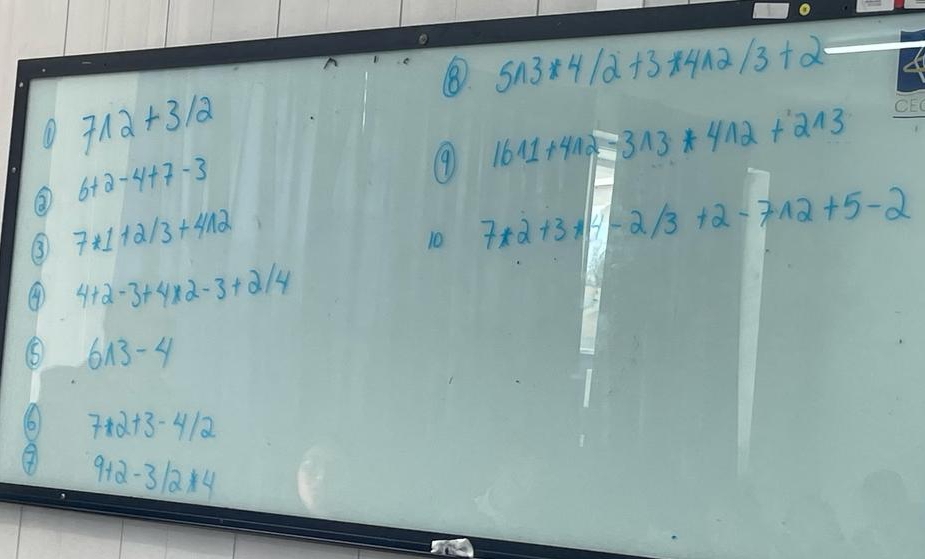 ① 7^2+3/2
② 6+2-4+7-3
③ 7*1+2/3+4^2
④ 4+2-3+4*2-3+2/4
⑤ 6^3-4
⑥ 7*2+3-4/2
⑦ 9+2-3/2*4
⑧ 5^3*4/2+3*4^2/3+2
⑨ 16^1+4^2-3^3*4^2+2^3
10 7*2+3*4-2/3+2-7^2+5-2